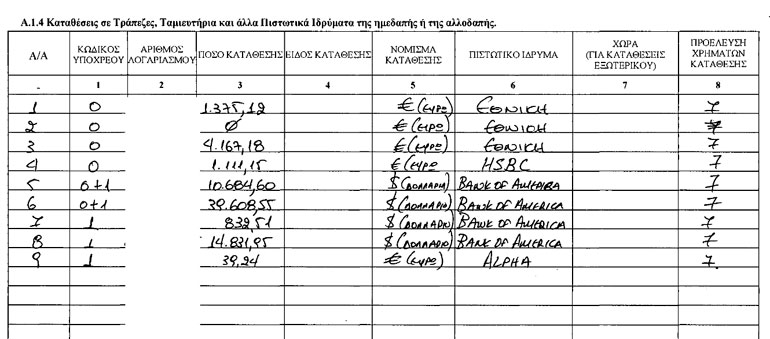 Α.1.4 Καταθέσεις σε Τράπεζες, Ταμιευτήρια και άλλα Πιστωτικά Ιδρύματα της ημεδαπής ή της αλλοδαπής.
Α/Α ΚΩΔΙΚΟΣ ΥΠΟΧΡΕΟΥ ΑΡΙΘΜΟΣ ΛΟΓΑΡΙΑΣΜΟΥ ΠΟΣΟ ΚΑΤΑΘΕΣΗΣ ΕΙΔΟΣ ΚΑΤΑΘΕΣΗΣ ΝΟΜΙΣΜΑ ΚΑΤΑΘΕΣΗΣ ΠΙΣΤΩΤΙΚΟ ΙΔΡΥΜΑ ΧΩΡΑ (ΓΙΑ ΚΑΤΑΘΕΣΕΙΣ ΕΞΩΤΕΡΙΚΟΥ) ΠΡΟΕΛΕΥΣΗ ΧΡΗΜΑΤΩΝ ΚΑΤΑΘΕΣΗΣ
- 1 2 3 4 5 6 7 8
1 0 1.375,12 € (ΕΥΡΩ) ΕΘΝΙΚΗ 7
2 0 Ø € (ΕΥΡΩ) ΕΘΝΙΚΗ 7
3 0 4.167,18 € (ΕΥΡΩ) ΕΘΝΙΚΗ 7
4 0 1.111,15 € (ΕΥΡΩ HSBC 7
5 0+1 10.684,60 $ (ΔΟΛΛΑΡΙΑ) BANK OF AMERICA 7
6 0+1 39.608,55 $ (ΔΟΛΛΑΡΙΑ) BANK OF AMERICA 7
7 1 832,51 $ (ΔΟΛΛΑΡΙΑ) BANK OF AMERICA 7
8 1 14.831,95 $ (ΔΟΛΛΑΡΙΑ) BANK OF AMERICA 7
9 1 39,24 € (ΕΥΡΩ) ALPHA 7